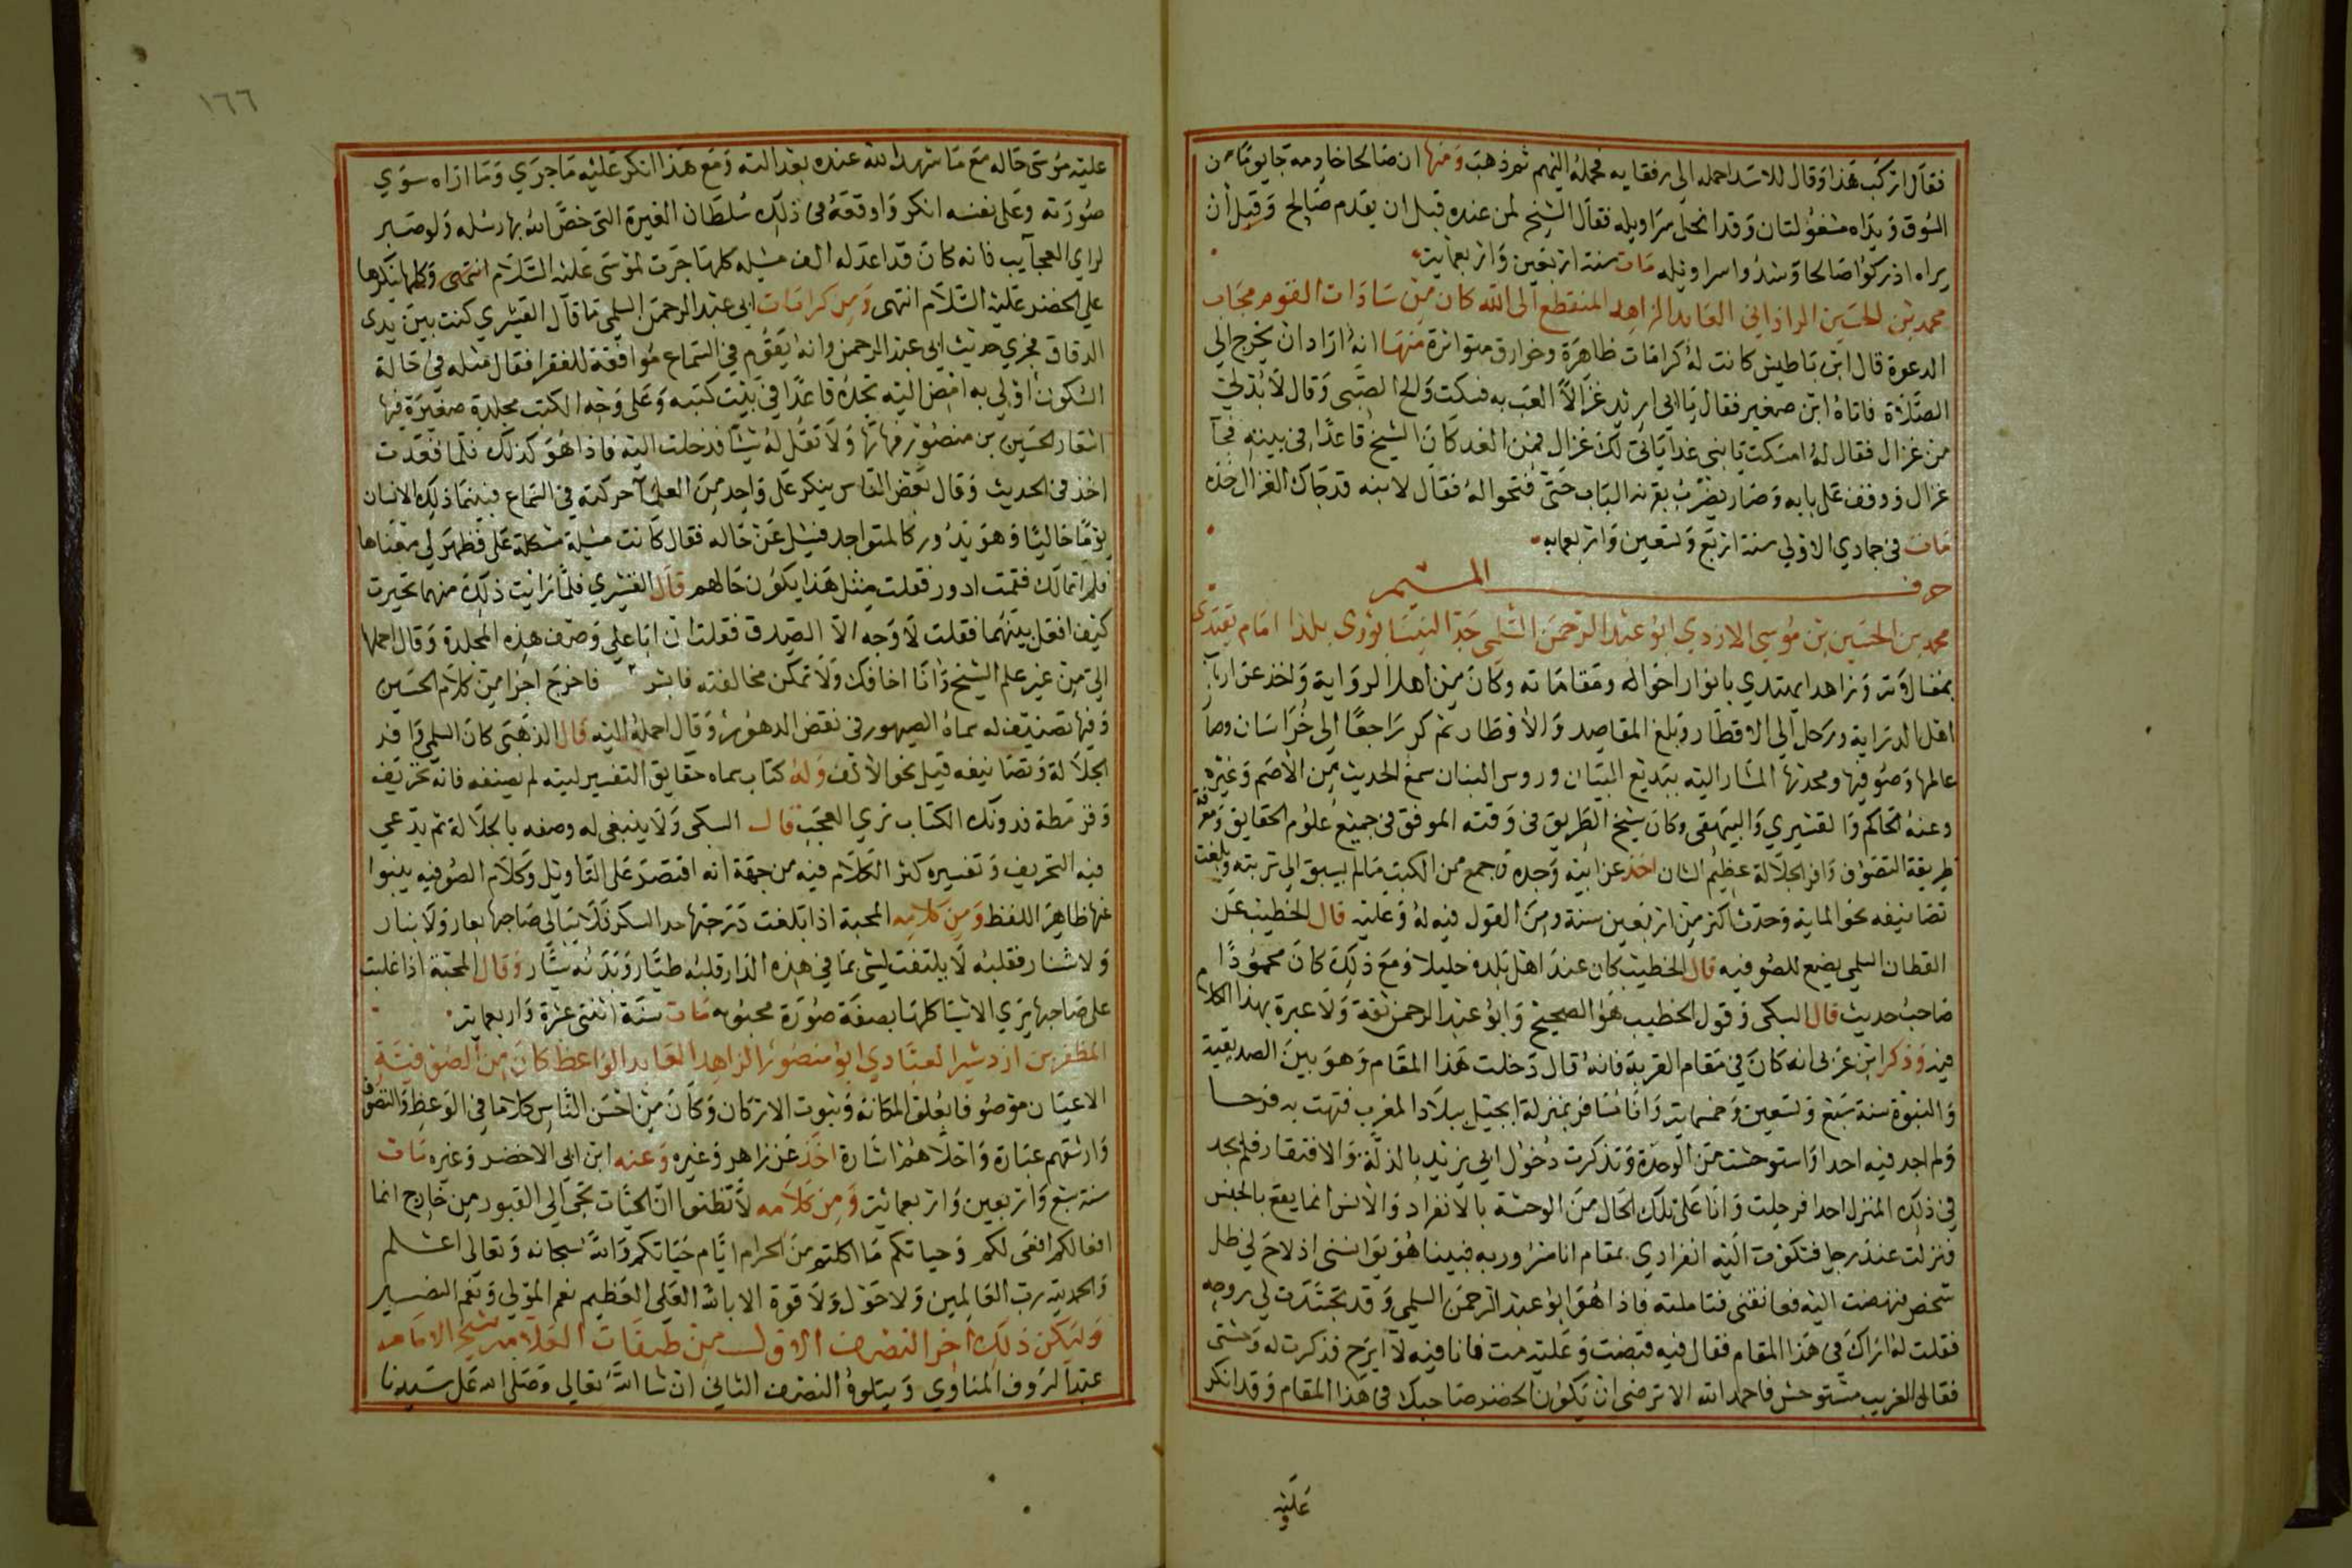 فقال اركب هذا وقال للاسد احمله الى رفقايه فحمله اليهم ثم ذهب ومنها ان صالحا خادمه جا يوما من
السوق ويداه مشغولتان وقد انحل سراويله فقال الشيخ لمن عنده قبل ان يقدم صالح وقبل أن
يراه ادركوا صالحا وشدوا سراويله مات سنة اربعين واربعماية
محمد بن الحسين الراذاني العابد الزاهد المنقطع الى الله كان من سادات القوم مجاب
الدعوة قال ابن باطيش كانت له كرامات ظاهرة وخوارق متواترة منها انه اراد ان يخرج الي
الصلاة فاتاه ابن صغير فقال يا ابي اريد غزالا العب به فسكت والح الصبي وقال لا بد لي
من غزال فقال له اسكت يا بني غدا ياتي لك غزال فمن الغد كان الشيخ قاعدا في بيته فجآ
غزال ووقف على بابه وصار يضرب بقرنه الباب حتى فتحوا له فقال لابنه قد جاك الغزال خذه
مات في جمادي الاولي سنة اربع وتسعين واربعمايه
حرف الميم
محمد بن الحسين بن موسي الازدي ابو عبد الرحمن السلمي جد النيسابوري بلدا امام يقتدى
بمقاله وزاهد يهتدي بانوار احواله ومقاماته وكان من اهل الرواية واخذ عن ارباب
اهل الدراية ورحل الي الاقطار وبلغ المقاصد والاوطار ثم كر راجعا الى خراسان وصار
عالمها وصوفيها ومحدثها المشار اليه ببديع البيان وروس البنان سمع الحديث من الاصم وغيره
وعنه الحاكم والقشيري والبيهقى وكان شيخ الطريق في وقته الموفق في جميع علوم الحقايق ومعرفة
طريقة التصوف وافر الجلالة عظيم الشان اخذ عن ابيه وجده وجمع من الكتب ما لم يسبق الى ترتبته وبلغت
تصانيفه نحو الماية وحدث اكثر من اربعين سنة ومن القول فيه له وعليه قال الخطيب عن
القطان السلمي يضع للصوفيه قال الخطيب كان عند اهل بلده جليلا ومع ذلك كان محمودا
صاحب حديث قال السبكى وقول الخطيب هو الصحيح وابو عبد الرحمن ثقة ولا عبرة بهذا الكلام
فيه وذكر ابن عربى انه كان في مقام القربة فانه قال دخلت هذا المقام وهو بين الصديقية
والنبوة سنة سبع وتسعين وخمسماية وانا مسافر بمنزلة ابجيل ببلاد المغرب فتهت به فرحا
ولم اجد فيه احدا واستوحشت من الوحدة وتذكرت دخول ابي يزيد بالذلة والافتقار فلم يجد
في ذلك المنزل احدا فرحلت وانا على تلك الحال من الوحشة بالانفراد والانس انما يقع بالجنس
ونزلت عند رجل فشكوت اليه انفرادي بمقام انا مسرور به فبينا هو يؤانسني اذ لاح لي ظل
شخص فنهضت اليه فعانقني فتاملته فاذا هو ابو عبد الرحمن السلمي وقد تجسدت لي روحه
فقلت له اراك في هذا المقام فقال فيه قبضت وعليه مت فانا فيه لا ابرح فذكرت له وحشتي
فقال الغريب مستوحش فاحمد الله الا ترضى ان تكون الخضر صاحبك في هذا المقام وقد انكر
عليه
١٦٦
عليه موسى حاله مع ما شهد الله عنده بعدالته ومع هذا انكر عليه ما جري وما اراه سوي
صورته وعلى نفسه انكر واوقعه في ذلك سلطان الغيرة التي خص الله بها رسله ولو صبر
لراي العجآيب فانه كان قد اعد له الف مسئله كلها جرت لموسى عليه السلام انتهى وكلها ينكرها
علي الخضر عليه السلام انتهى ومن كرامات ابي عبد الرحمن السلمي ما قال القشيري كنت بين يدى
الدقاق فجري حديث ابي عبد الرحمن وانه يقوم في السماع موافقة للفقرا فقال مثله في حاله
السكون أولي به امض اليه تجده قاعدا في بيت كتبه وعلى وجه الكتب مجلدة صغيرة فيها
اشعار الحسين بن منصور فهاتها ولا تقل له شيئا فدخلت اليه فاذا هو كذلك فلما قعدت
اخذ في الحديث وقال بعض الناس ينكر على واحد من العلمآ حركته في السماع فبينما ذلك الانسان
يوما خاليا وهو يدور كالمتواجد فسئل عن حاله فقال كانت مسئلة مشكلة على فظهر لي معناها
فلم اتمالك فقمت ادور فقلت مثل هذا يكون حالهم قال القشيري فلما رايت ذلك منهما تحيرت
كيف افعل بينهما فقلت لا وجه الا الصدق فقلت ان ابا علي وصف هذه المجلدة وقال احملها
الي من غير علم الشيخ وانا اخافك ولا تمكن مخالفته فاخرج اجزا من كلام الحسين
وفيها تصنيف له سماه الصيهور في نقض الدهور وقال احمله اليه قال الذهبى كان السلمي وافر
الجلالة وتصانيفه قيل نحو الألف وله كتاب سماه حقايق التفسير ليته لم يصنفه فانه تحريف
وقرمطة فدونك الكتاب تري العجب قال السبكى ولا ينبغي له وصفه بالجلالة ثم يدعي
فيه التحريف وتفسيره كثر الكلام فيه من جهة انه اقتصر على التاويل وكلام الصوفيه ينبوا
عنها ظاهر اللفظ ومن كلامه المحبة اذا بلغت درجتها حد السكر فلا يبالى صاحبها بعار ولا بنار
ولا شنار فقلبه لا يلتفت لشي مما في هذه الدار قلبه طيار وبدنه سيار وقال المحبة اذا غلبت
على صاحبها يري الاشيا كلها بصفة صورة محبوبه مات سنة اثنتى عشرة واربعماية
المظفر بن ازدشير العبادي ابو منصور الزاهد العابد الواعظ كان من الصوفية
الاعيان موصوفا بعلو المكانه وثبوت الاركان وكان من احسن الناس كلاما في الوعظ والتصوف
وارشقهم عبارة واحلاهم اشارة اخذ عن زاهر وغيره وعنه ابن ابي الاخضر وغيره مات
سنة سبع واربعين واربعمائة ومن كلامه لا تظنوا ان الحيات تجي الي القبور من خارج انما
افعالكم افعى لكم وحياتكم ما اكلتم من الحرام ايام حياتكم والله سبحانه وتعالى اعلم
والحمد لله رب العالمين ولا حول ولا قوة الا بالله العلي العظيم نعم المولي ونعم النصير
وليكن ذلك اخر النصف الاول من طبقات العلامه شيخ الامام
عبد الروف المناوي ويتلوه النصف الثاني ان شا الله تعالي وصلى الله على سيدنا